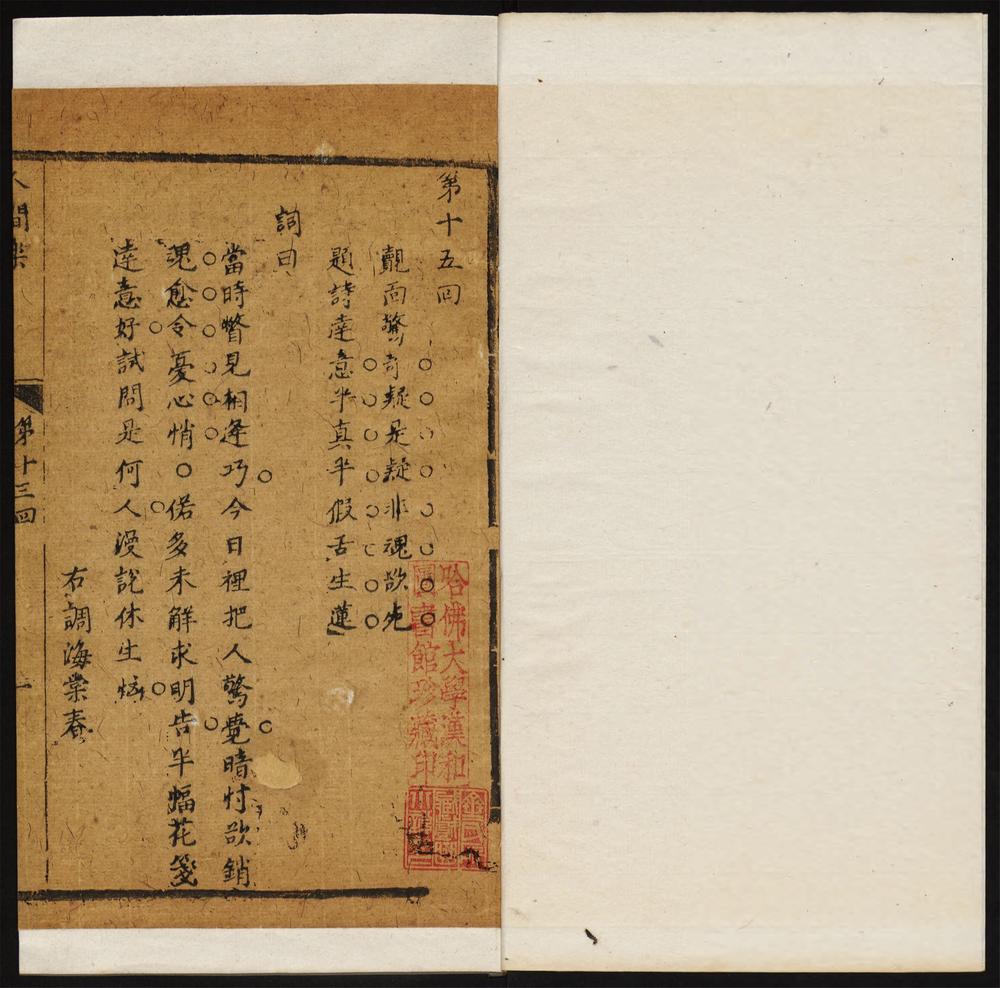 第十五回
覿面驚奇疑是疑非魂欲
題詩達意半真半假舌生蓮
詞曰
當時瞥見相逢巧今日裡把人驚覺暗忖欲銷
魂愈令憂心悄〇偌多未解求明告半幅花箋
達意好試問是何人漫說休生
右調海棠春
人間樂
第十三回
一
哈佛大學漢和
圖書館珍藏印